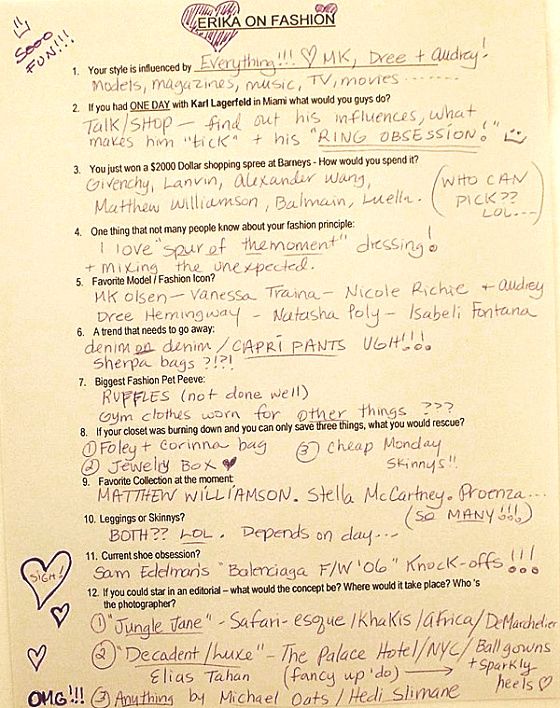 ERIKA ON FASHION
SOOO FUN!!!
1. Your style is influenced by Everything!!! ♡ MK, Dree + Audrey!
Models, magazines, music, TV, movies........
2. If you had ONE DAY with Karl Lagerfeld in Miami what would you guys do?
Talk/SHOP — find out his influences, what
makes him "tick" + his "RING OBSESSION!"
3. You just won a $2000 Dollar shopping spree at Barneys - How would you spend it?
Givenchy, Lanvin, Alexander Wang,
Matthew Williamson, Balmain, Luella.
(WHO CAN PICK?? LOL...)
4. One thing that not many people know about your fashion principle:
I love "spur of the moment" dressing!
+ mixing the unexpected.
5. Favorite Model / Fashion Icon?
MK Olsen — Vanessa Traina — Nicole Richie + Audrey
Dree Hemingway - Natasha Poly - Isabeli Fontana
6. A trend that needs to go away:
denim on denim / CAPRI PANTS UGH!!!
Sherpa bags ?!?!
7. Biggest Fashion Pet Peeve:
RUFFLES (not done well)
Gym clothes worn for other things ???
8. If your closet was burning down and you can only save three things, what you would rescue?
① Foley + Corinna bag ③ Cheap Monday
② Jewelry Box ♥ Skinnys!!
9. Favorite Collection at the moment:
MATTHEW WILLIAMSON. Stella McCartney. Proenza...
(SO MANY!!!)
10. Leggings or Skinnys?
BOTH?? LOL. Depends on day...
11. Current shoe obsession?
Sam Edelman's "Balenciaga F/W '06" Knock-offs!!!
SIGH!
12. If you could star in an editorial – what would the concept be? Where would it take place? Who 's
the photographer?
① "Jungle Jane" - Safari-esque/Khakis/Africa/DeMarchelier
② "Decadent/Luxe" - The Palace Hotel/NYC/Ballgowns
+ Sparkly heels ♡
Elias Tahan (fancy up 'do)
OMG!!! ③ Anything by Michael Oats / Hedi Slimane